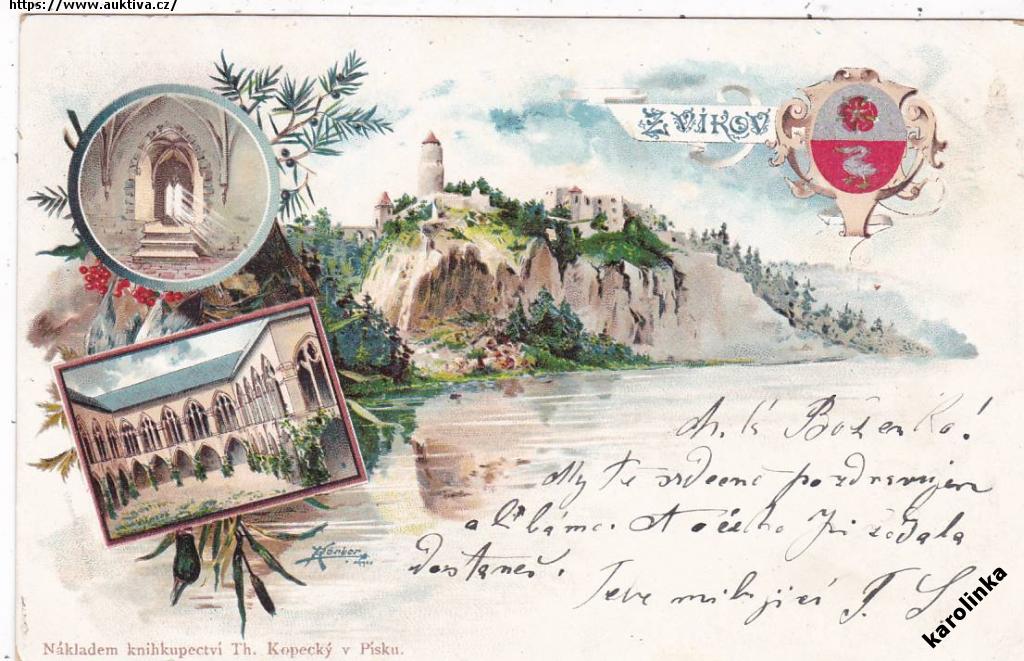 https://www.auktiva.cz/
Zvíkov
M. k Boženko!
My Te srdečně pozdravujem
a líbáme. A čeho jsi žádala
dostaneš.
Tebe milující F. S
Körber
Nákladem knihkupectví Th. Kopecký v Písku.
karolinka